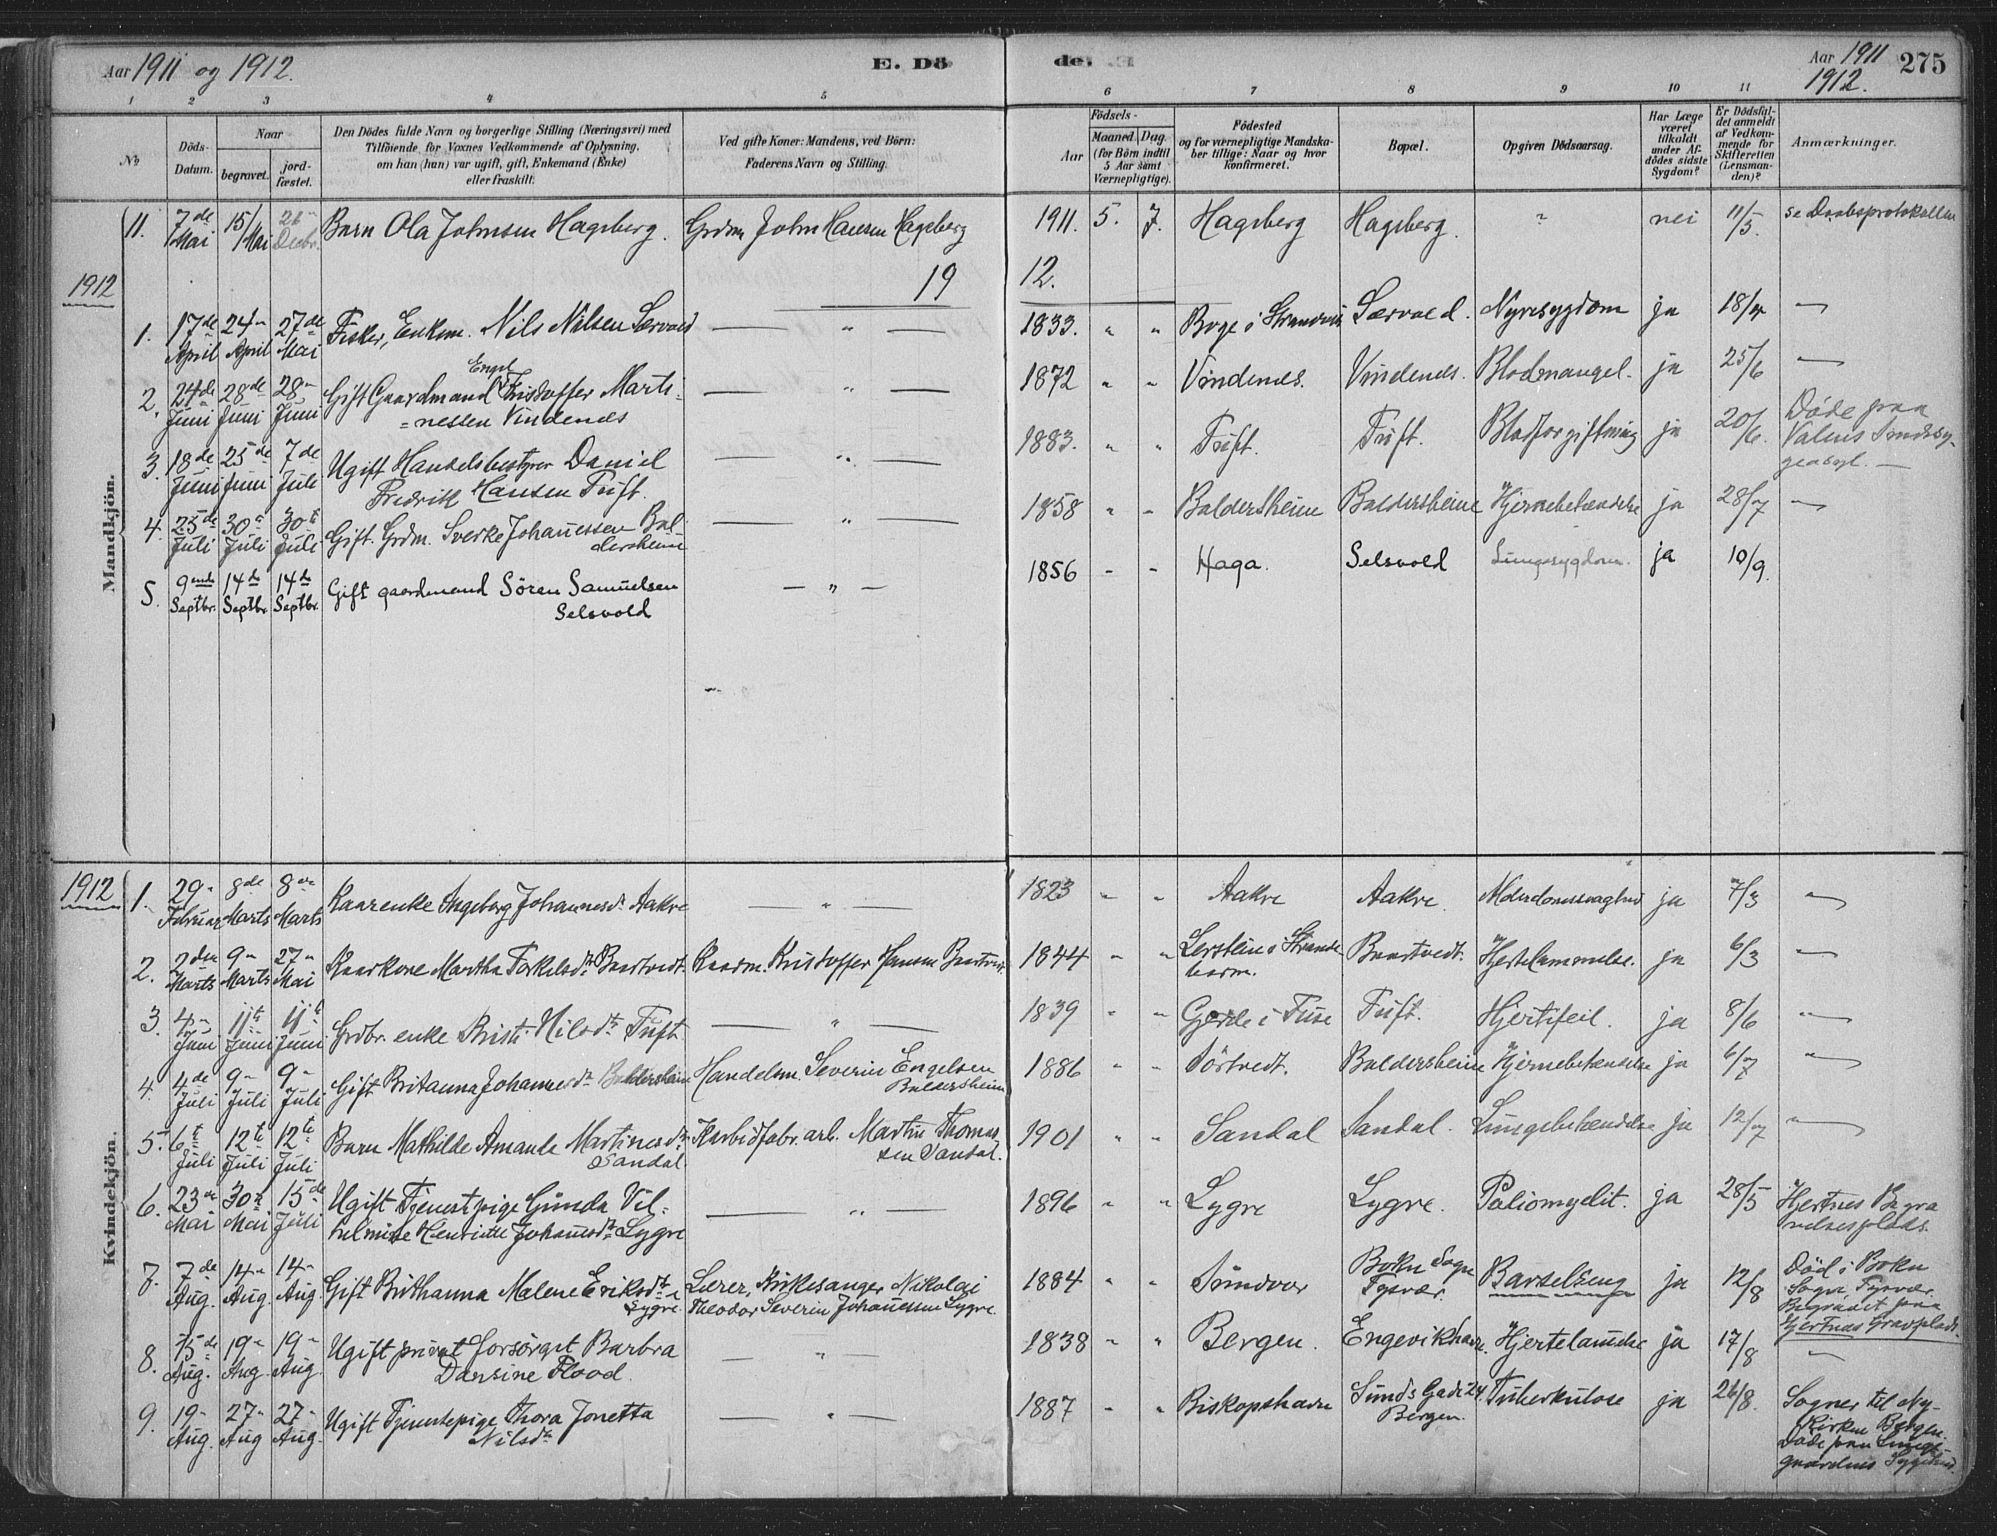 Aar 1911 og 1912.
E. Dö
de. E
Aar 1911
1912.
275
1 2 3 4 5 6 7 8 9 10 11
No
Döds-Datum.
Naar
begravet.
jordfæstet.
Den Dödes fulde Navn og borgerlige Stilling (Næringsvei) med
Tilföiende for Voxnes Vedkommende af Oplysning,
om han (hun) var ugift, gift, Enkemand (Enke)
eller fraskilt.
Ved gifte Koner: Mandens, ved Börn:
Faderens Navn og Stilling.
Aar
Födsels-
Maaned. Dag.
(for Börn indtil
5 Aar samt
Værnepligtige).
Födested
og for værnepligtige Mandska-
ber tillige: Naar og hvor
konfirmeret.
Bopæl.
Opgiven Dödsaarsag.
Har Læge
været
tilkaldt
under Af-
dödes sidste
Sygdom?
Er Dödsfal-
det anmeldt
af Vedkom-
mende for
Skifteretten
(Lensman-
den)?
Anmærkninger.
Mandkjön.
11. 7de Mai 15/Mai 26 Decbr. Barn Ola Johnsen Hagsberg. Grdm John Hansen Hagsberg 1911. 5. 7. Hagsberg Hagsberg. " nei 11/5. se Daabsprotokollen
1912
19 12.
1. 17de April 24 April 27de Mai Fisker, Enkem. Nils Nilsen Særvold — " — 1833. " " Boge i Strandvik Særvold. Nyresygdom ja 18/4 —
2. 24de Juni 28de Juni 28 Juni Gift Gaardmand Engel Kristoffer Marti-
nessen Vindenes — " — 1872 " " Vindenes. Vindenes. Blodmangel. ja 25/6 —
3. 18de Juni 25de Juni 7de Juli Ugift Handelsbestyrer Daniel
Fredrik Hansen Tuft. — " — 1883. " " Tuft. Tuft. Blodforgiftning ja 20/6. Döde paa
Valens Sindssy-
geasyl. —
4. 25de Juli 30 Juli 30te Juli Gift Grdm. Sverke Johannessen Bal-
dersheim — " — 1858 " " Baldersheim Baldersheim Hjernebetændelse ja 28/7 —
5. 9nde Septbr. 14de Septbr. 14de Septbr. Gift gaardmand Sören Samuelsen
Selsvold — " — 1856 - - Haga. Selsvold Lungesygdom. ja 10/9.
Kvindekjön.
1912
1. 29 Februar 8de Marts 8de Marts Kaarenke Ingeborg Johannesdt Aakre — " — 1823 " " Aakre Aakre. Alderdomssvaghed ja 7/3 —
2. 2den Marts 9 Marts 27 Mai Kaarkone Martha Torkelsdt Baartvedt. Kaarm. Kristoffer Hansen Baartvedt 1844 " " Lerstein i Strande
barm. Baartvedt. Hjertelammelse. ja 6/3 —
3. 4 Juni 11te Juni 11te Juni Grdbr. enke Brite Nilsdt Tuft. — " — 1839 " " Gjerde i Fuse Tuft. Hjertefeil. ja 8/6 —
4. 4de Juli 9 Juli 9 Juli Gift Britanna Johannesdt Baldersheim Handelsm. Severin Engelsen
Baldersheim 1886 " " Törtvedt. Baldersheim Hjernebetændelse ja 6/7 "
5. 6te Juli 12te Juli 12te Juli Barn Mathilde Amande Martinesdt
Sandal. Karbidfabr. arb. Martin Thomas-
sen Sandal. 1901 " " Sandal Sandal. Lungebetændelse ja 12/7 —
6. 23de Mai 30 Mai 15de Juli Ugift Tjenestpige Gunda Vil-
helmine Henriette Johannesdt Lygre — " — 1896 " " Lygre Lygre. Poliomyelit. ja 28/5 Hjertnes Begra
velsesplads.
7. 7de Aug. 14 Aug. 14 Aug. Gift Brithanna Malene Eriksdt
Lygre. Lærer, Kirkesanger Nikolai
Theodor Severin Johannessen Lygre. 1884 " " Sundvor Bokn Sogn
Tysvær. Barselseng ja 12/8 Död i Bokn
Sogn, Tysvær.
Begravet paa
Hjertnæs Gravplads.
8. 15de Aug. 19 Aug. 19 Aug. Ugift privat forsörget Barbra
Dorsine Flood. — " — 1838 " " Bergen. Engevikhavn. Hjertelamelse ja 17/8 "
9. 19 Aug. 27 Aug 27 Aug. Ugift Tjenestepige Thora Jonetta
Nilsdt — " — 1887 " " Biskopshavn Sunds Gade 24.
Bergen. Tuberkulose ja 26/8. Sogner til Ny-
kirken Bergen.
Döde paa Lunge-
gaardens Sygehus.